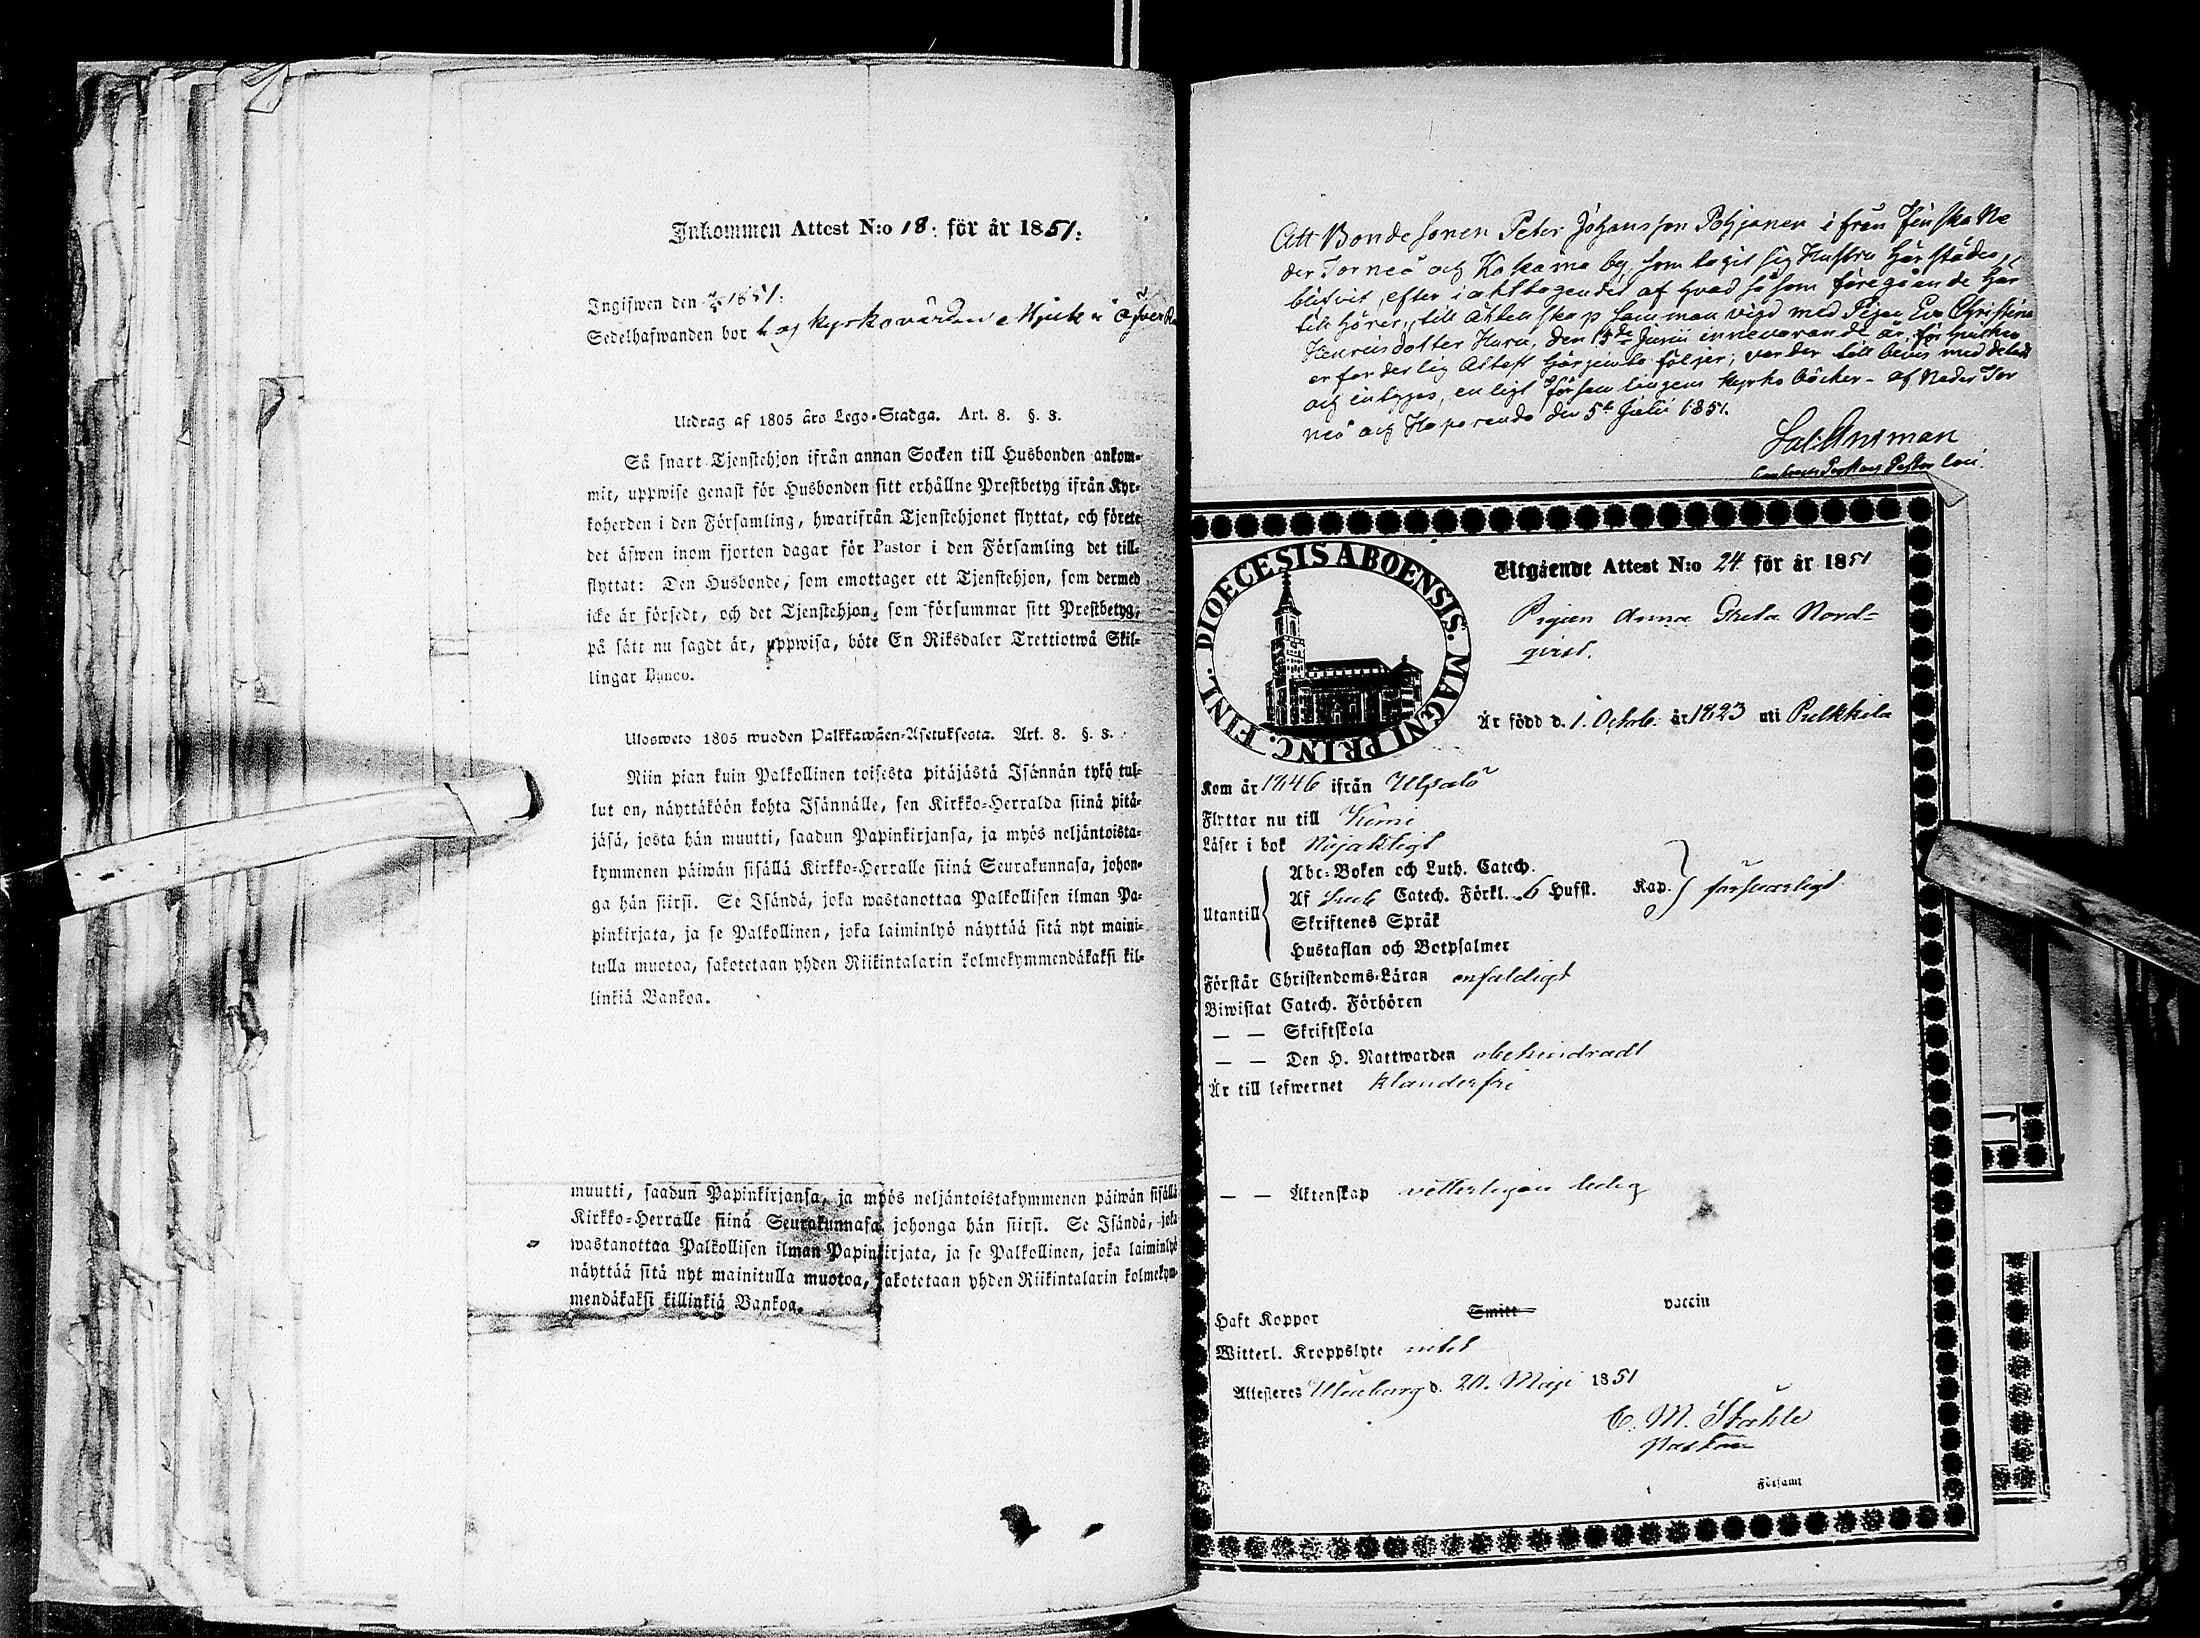 Inkommen Attest N:o 18. för år 1851.
Ingifwen den 1851.
Sedelhafwanden bor hos kyrkovärden
Utdrag af 1805 års Lego-Stadga. Art. 8. §. 3.
Så snart Tjenstehjon ifrån annan Socken till Husbonden ankom-
mit, uppwise genast för Husbonden sitt erhållne Prestbetyg ifrån Kyr-
koherden i den Församling, hwarifrån Tjenstehjonet flyttat, och förete
det äfwen inom fjorton dagar för Pastor i den Församling det till-
flyttat: Den Husbonde, som emottager ett Tjenstehjon, som dermed
icke är försedt, och det Tjenstehjon, som försummar sitt Prestbetyg,
på sätt nu sagdt är, uppwisa, böte En Riksdaler Trettiotwå Skil-
lingar Banco.
Ulosweto 1805 wuoden Palkkawäen-Asetuksesta. Art. 8. §. 3.
Niin pian kuin Palkollinen toisesta pitäjästä Isännän tykö tul-
lut on, näyttäköön kohta Isännälle, sen Kirkko-Herralda siinä pitä-
jäsä, josta hän muutti, saadun Papinkirjansa, ja myös neljäntoista-
kymmenen päiwän sisällä Kirkko-Herralle siinä Seurakunnasa, johon-
ga hän siirsi. Se Isändä, joka wastanottaa Palkollisen ilman Pa-
pinkirjata, ja se Palkollinen, joka laiminlyö näyttää sitä nyt maini-
tulla muotoa, sakotetaan yhden Riikintalarin kolmekymmendäkaksi kil-
linkiä Bankoa.
muutti, saadun Papinkirjansa, ja myös neljäntoistakymmenen päiwän sisällä
Kirkko-Herralle siinä Seurakunnasa, johonga hän siirsi. Se Isändä, joka
wastanottaa Palkollisen ilman Papinkirjata, ja se Palkollinen, joka laiminlyö
näyttää sitä nyt mainitulla muotoa, sakotetaan yhden Riikintalarin kolmekym-
mendäkaksi killinkiä Bankoa.
Att Bondesonen Peter Johansson Pohjanen ifrån Finska Ne
der Torneå och Kakama by, som tagit sig Hustru härstädes,
blifvit, efter iakttagendet af hvad såsom föregående här
till hörer, till Äktenskap samman vigd med Pigan Eva Christina
Henricsdotter Huru, den 15de Junii innevarande år, för hvilken
erforderlig Attest härjemte följer; varder till bevis meddeladt
och intygas, enligt Församlingens Kyrko böcker. af Neder Tor
neå och Haparanda den 5te Julii 1851.
DIOECESIS ABOENSIS. MAGNI PRINC. FINL.
Utgående Attest N:o 24 för år 1851
Pigan Anna Greta Nord-
qvist.
Är född d. 1. Octob. år 1823 uti Pulkkila
Kom år 1846 ifrån Uhleålö
Flyttar nu till Kemi
Läser i bok Nöjaktigt
Utantill
Abc-Boken och Luth. Catech.
Af Sveb Catech. Förkl. 6 Hufst. Kap. försvarligt
Skriftenes Språk
Hustaflan och Botpsalmer
Förstår Christendoms-Läran enfaldigt
Biwistat Catech. Förhören
— — Skriftskola
— — Den H. Nattwarden obehindradt
Är till lefwernet klanderfri
— — Äktenskap vetterligen ledig
Haft Koppor Smitt vaccin
Witterl. Kroppslyte intet
Attesteres Uleåborg d. 20. Maji 1851
C. M. Ståhle
Pastor
Församl